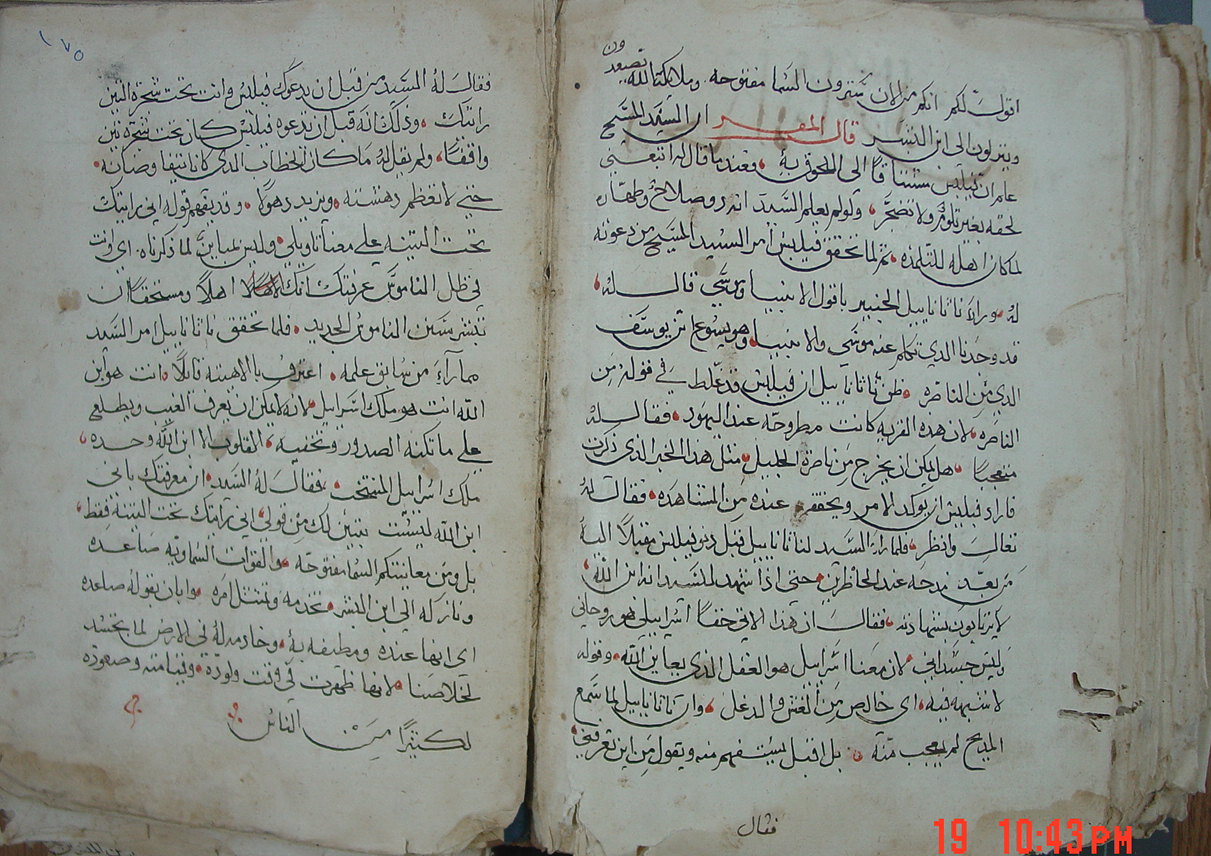 اقول لكم انكم من الان سترون السما مفتوحه وملائكة الله يصعدون
وينزلون الى ابن البشر قال المفسر ان السيد المسيح
علم ان فيلبس مشتاقا الى اللحوق به فعند ما قال له اتبعني
لحقه بغير تلوم ولا تضجر ولو لم يعلم السيد انه ذو صلاح وطهاره
لما كان اهله للتلمذه ثم لما تحقق فيلبس امر السيد المسيح من دعوته
له وراى ناثانابيل الخبير باقول الانبيا وموسى قال له
قد وجدنا الذي تكلم عنه موسى والانبيا وهو يسوع ابن يوسف
الذي من الناصره ظن ناثانابيل ان فيلبس قد غلط في قوله من
الناصره لان هذه القريه كانت مطروحه عند اليهود فقال له
متعجبا هل يمكن ان يخرج من ناصرة الجليل مثل هذا الخبر الذي ذكرت
فاراد فيلبس ان يوكد الامر ويحققه عنده من المشاهده فقال له
تعال وانظر فلما راى السيد لناثانابيل قبل مقبلا اليه
من بعد مدحه عند الحاظرين حتى اذا شهد للسيد انه ابن الله
لا يرتابون بشهادته فقال ان هذا الاتي حقا اسراييلي هو روحاني
وليس جسداني لان معنا اسراييل هو العقل الذي يعاين الله وقوله
لا شبهه فيه اي خالص من الغش والدغل وان ناثانابيل لما سمع
المديح لم يعجب منه بل اقبل يستفهم منه ويقول من اين تعرفني
فقال
١٧٥
فقال له السيد من قبل ان يدعوك فيلبس وانت تحت شجرة التين
رايتك وذلك انه قبل ان يدعوه فيلبس كان تحت شجرة تين
واقفا ولم يقل له ما كان الخطاب الذي كانا يتفاوضانه
حتى لا تعظم دهشته ويزيد دهولا وقد يفهم قوله اني رايتك
تحت التينه على معنا تاويلي وليس لمباين لما ذكرناه اي وانت
في ظل الناموس عرفتك انك اهلا ومستحقا ان
تنشر سنن الناموس الجديد فلما تحقق ناثانابيل امر السيد
مما راه من سابق علمه اعترف بالاهيته قايلا انت هو ابن
الله انت هو ملك اسراييل لانه لا يمكن ان يعرف الغيب ويطلع
على ما تكنه الصدور وتخفيه القلوب الا ابن الله وحده
ملك اسراييل المنتخب فقال له السيد ان معرفتك باني
ابن الله ليست تبين لك من قولي اني رايتك تحت التينه فقط
بل ومن معاينتكم السما مفتوحه والقوات السماويه صاعده
ونازله الى ابن البشر تخدمه وتمتثل امره وابان بقوله صاعده
اي انها عنده ومطيفه به وخادمه له في الارض لما تجسد
لخلاصنا لانها ظهرت في وقت ولوده وقيامته وصعوده
لكثيرا من الناس
19 10:43PM